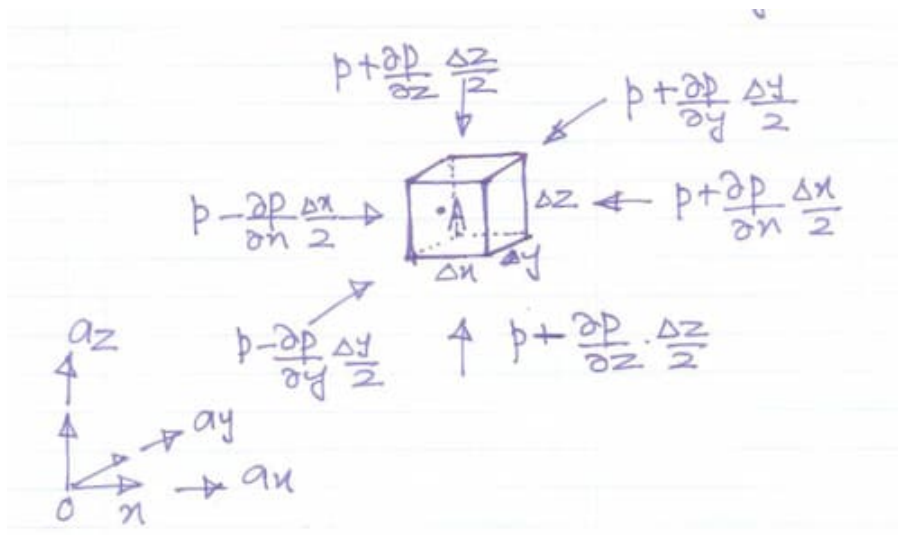 p+∂p/∂z Δz/2
p+∂p/∂y Δy/2
p-∂p/∂x Δx/2
A
Δz
p+∂p/∂x Δx/2
Δx
Δy
p-∂p/∂y Δy/2
p+∂p/∂z.Δz/2
az
ay
ax
O
x